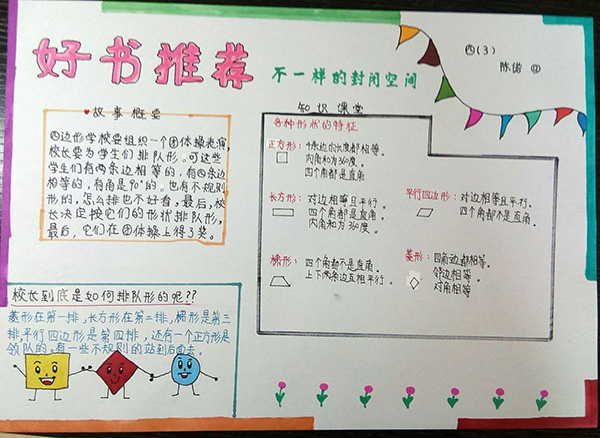 好书推荐
不一样的封闭空间
四(3)
陈
故事概要
四边形学校要组织一个团体操表演,
校长要为学生们排队形。可这些
学生们有两条边相等的,有四条边
相等的,有角是90°的。也有不规则
形的,怎么排也不好看,最后,校
长决定按它们的形状排队形,
最后,它们在团体操上得了奖。
知识课堂
各种形状的特征
正方形:4条边的长度都相等。
内角和为360度。
四个角都是直角
长方形:对边相等且平行。
四个角都是直角。
内角和为360度。
平行四边形:对边相等且平行。
四个角都不是直角。
梯形:四个角都不是直角。
上下两条边互相平行。
菱形:四角边都相等。
邻边相等。
对角相等
校长到底是如何排队形的呢??
菱形在第一排,长方形在第二排,梯形是第三
排,平行四边形是第四排,还有一个正方形是
领队的。有一些不规则的站到后面去。